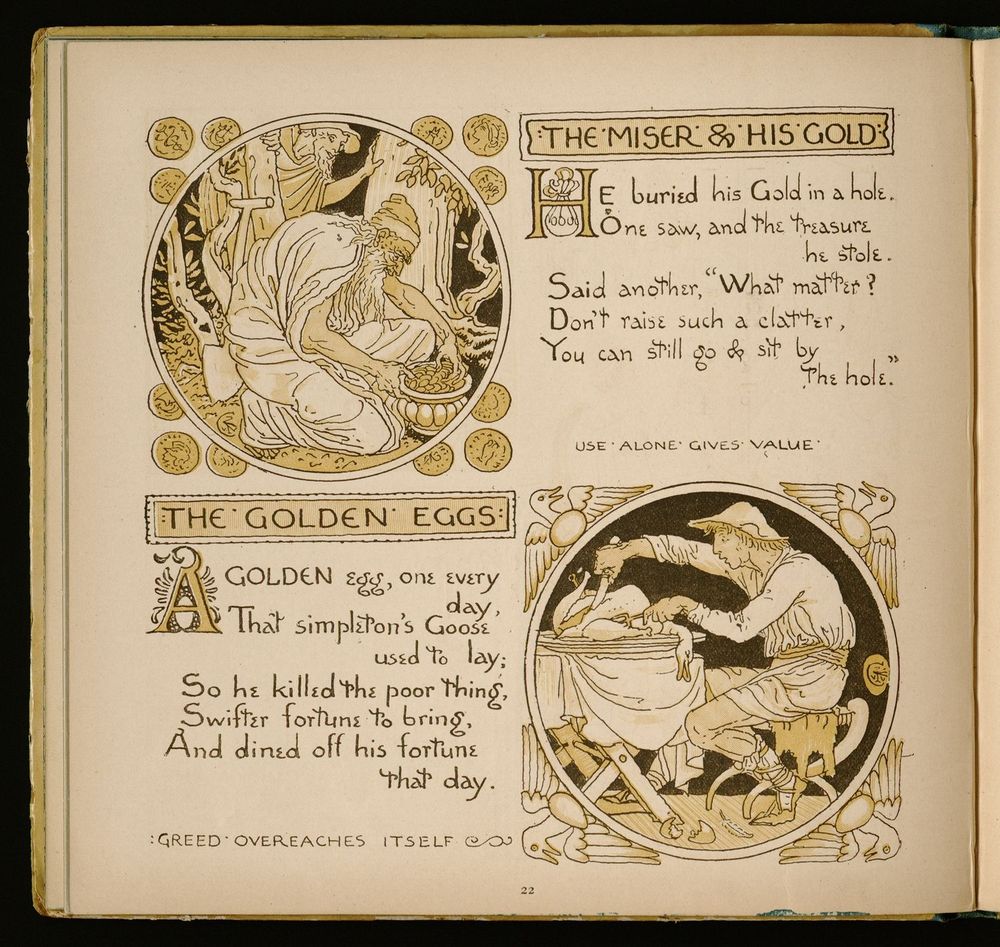 THE·MISER·&·HIS·GOLD
HE buried his Gold in a hole.
One saw, and the treasure
he stole.
Said another, “What matter?
Don't raise such a clatter,
You can still go & sit by
the hole.”
USE·ALONE·GIVES·VALUE·
:THE·GOLDEN·EGGS:
A GOLDEN egg, one every
day,
That simpleton's Goose
used to lay;
So he killed the poor thing,
Swifter fortune to bring,
And dined off his fortune
that day.
:GREED·OVEREACHES ITSELF
22